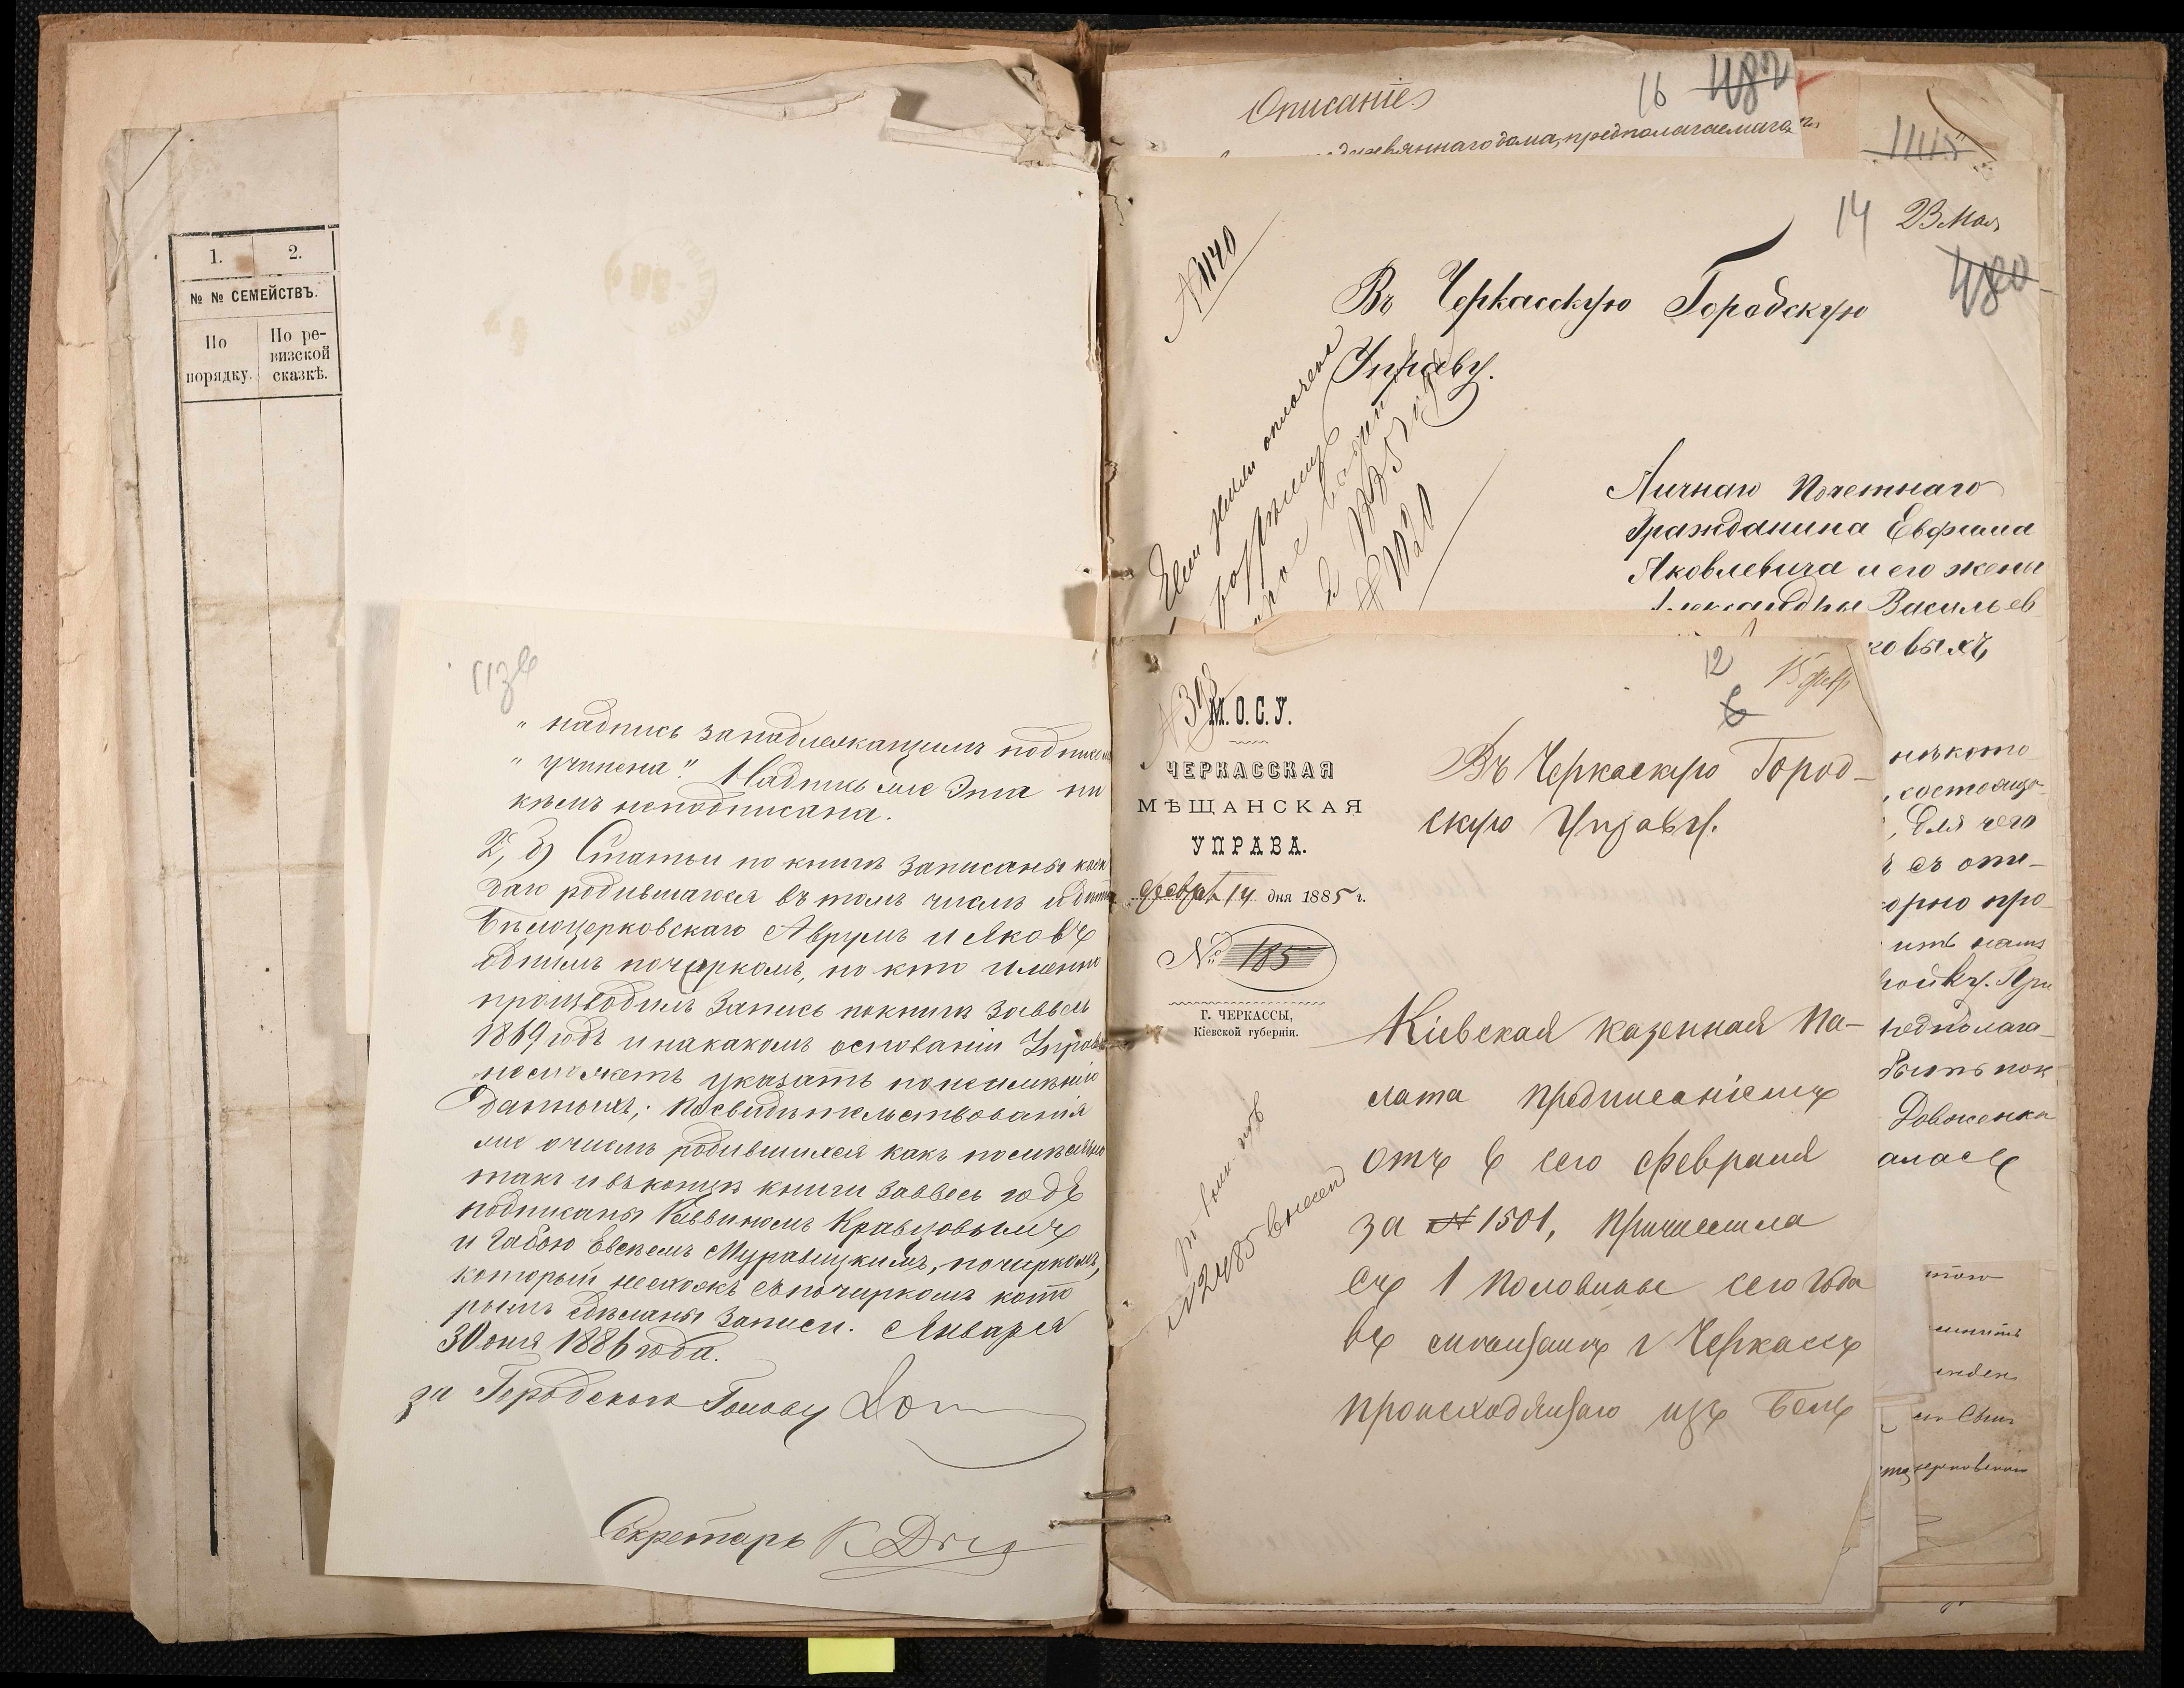 1.
2.
№ № СЕМЕЙСТВЪ.
По порядку.
По ре-
визской
сказкѣ.
„ надпись занадлежащимъ подписомъ
„ учинена“. Надпись же эта ни
кѣмъ неподписана.
2, б) Статьи по книгѣ записаны каж
даго родившагося въ томъ числѣ и дѣти
Бѣлоцерковскаго Аврумъ и Яковъ
однимъ почеркомъ, но кто именно
производилъ запись по книгѣ за весь
1869 годъ и на какомъ основаніи Управа
не можетъ указать по неимѣнію
данныхъ; Посвидѣтельствованія
же о числѣ родившихся какъ помѣсячно
такъ и въ концѣ книги за весь годъ
подписаны Раввиномъ Кравцовымъ
и Габою Евсѣемъ Муравицкимъ, почеркомъ,
который несхожъ съ почеркомъ кото
рымъ сдѣланы записи. Января
30 дня 1886 года.
за Городского Голову
Секретарь К.
Описаніе
деревяннаго дома, предполагаемаго
16 482
1115
14 23 Мая
480
№ 1140
Въ Черкасскую Городскую
Управу.
Личнаго Почетнаго
Гражданина Евфима
Яковлевича и его жены
Александры Васильев
ковыхъ
№ 1020
12
6
15 февр
М.О.С.У.
ЧЕРКАССКАЯ
МѢЩАНСКАЯ
УПРАВА.
Февр. 14 дня 1885 г.
№ 185
Г. ЧЕРКАССЫ,
Кіевской губерніи.
Въ Черкаскую Город-
скую Управу.
Кіевская казенная Па-
лата предписаніемъ
отъ 6 сего февраля
за № 1501, причислила
съ 1 половины сего года
въ мѣщане г Черкассъ
происходящаго изъ
№ 2485 внесенъ
состояще
для чего
съ
орно про
итъ намъ
ройку. При
предполага
быть пок
Довженка
алась